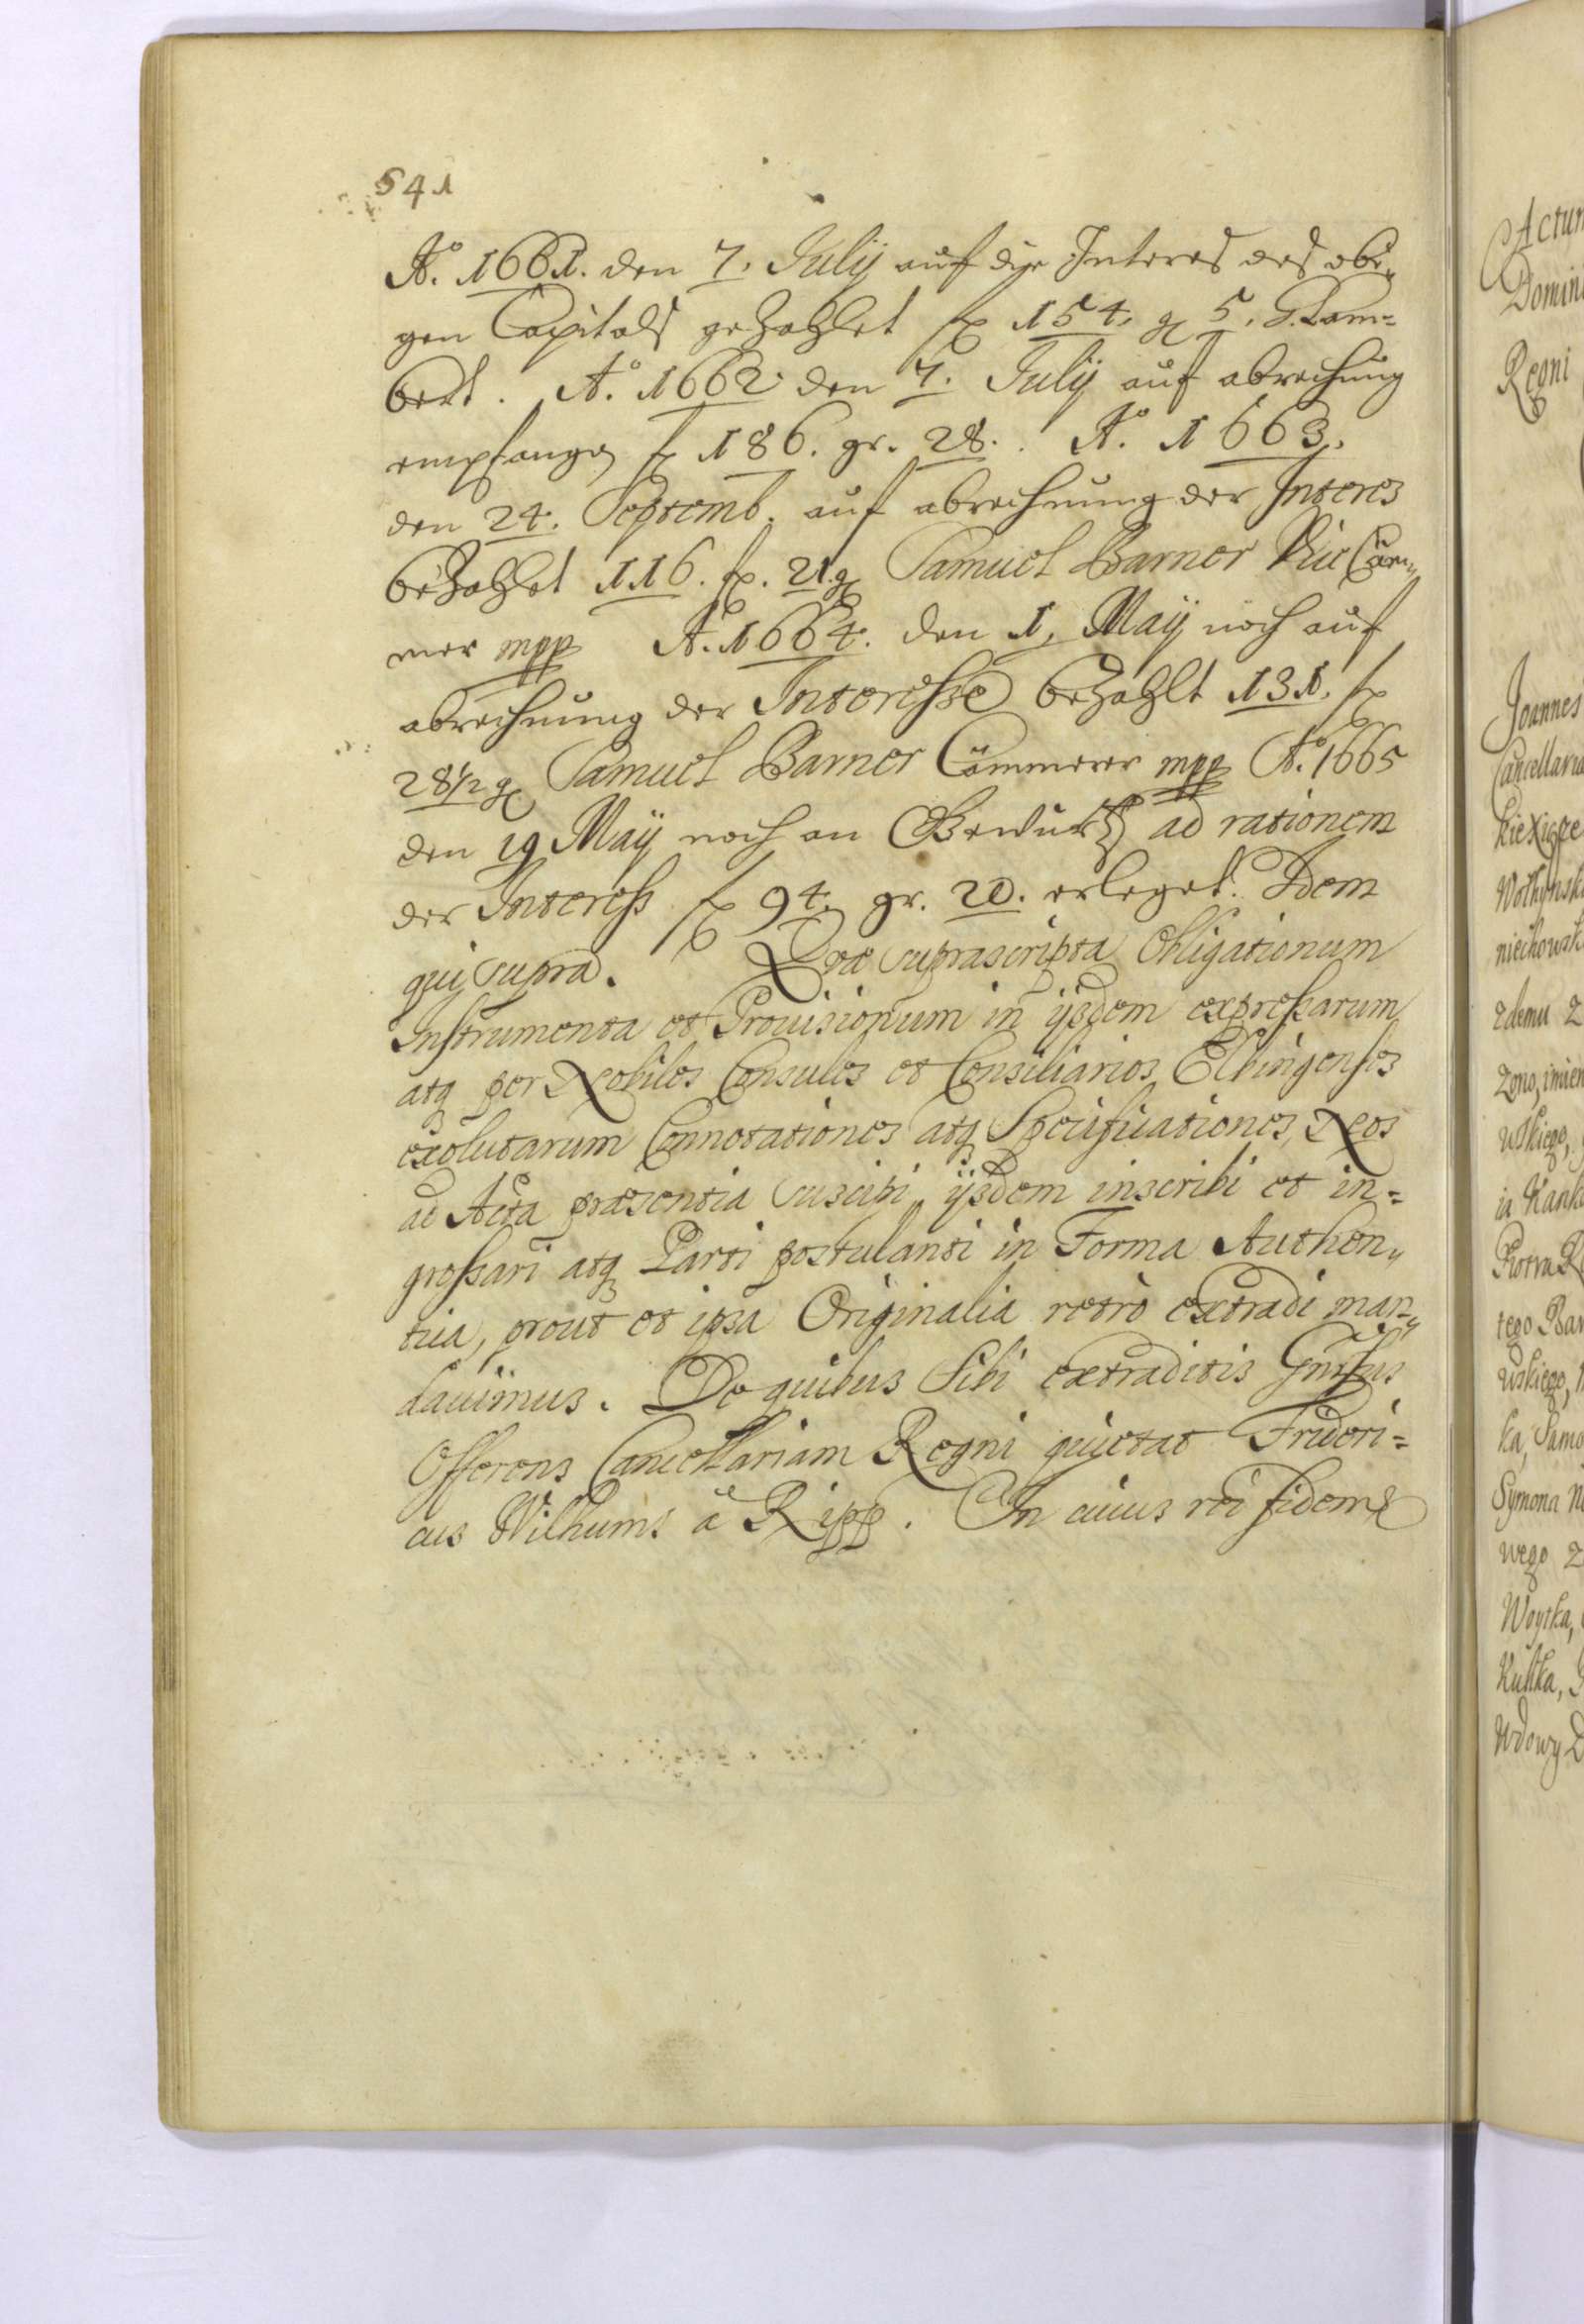 541
Aº. 1661. den 7. Julij auf die Interes des obi„
gen Capitals gezahlet fl 154. g 5. G. Lam=
bert. Aº. 1662 den 7. Julij auf abrechnung
empfangen fl 186. gr. 28. Aº. 1663.
den 24. Septemb. auf abrechnung der Interes
bezahlet 116. fl. 21 g Samuel Barner Vice Cäm„
mer mpp Aº. 1664. den 1, Maij noch auf
abrechnung der Interesse bezahlt 131. fl
28½ g Samuel Barner Cämmerer mpp Aº. 1665
den 19 Maij noch an Gewürtz ad rationem
der Interess fl 94. gr. 20. erleget. Idem
qui supra. Quæ suprascripta Obligationum
Instrumenta et Prouisionum in ijsdem expressarum
atq per Nobiles Consules et Consiliarios Elbingenses
exolutarum Connotationes atq Specificationes, Nos
ad Acta præsentia suscipi, ijsdem inscribi et in=
grossari atq Parti postulanti in Forma Authen„
tica, prout et ipsa Originalia retrò extradi man„
dauimus. De quibus Sibi extraditis Gnrsus
Offerens Cancellariam Regni quietat Frideri=
cus Wilhums à Ripp. In cuius rei fidem &
Actum
Domini
Regni
Joannes
Cancellaria
niechowsk
zdemu z
zono, imien
wskiego,
ia Kank
Piotra R
tego Bar
wskiego,
ka, Samo
Symona
wego z
Woytka,
Kustka,
Wdowy D